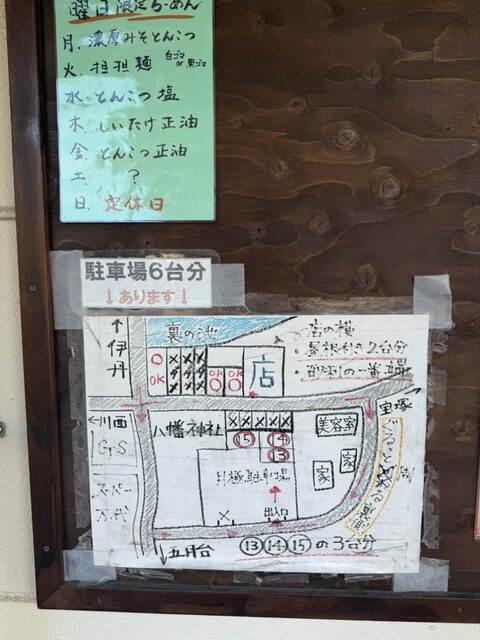 曜日限定らーめん
月. 濃厚みそとんこつ
火. 担担麺 白ゴマor黒ゴマ
水. とんこつ塩
木. しいたけ正油
金. とんこつ正油
土. ?
日. 定休日
駐車場6台分
↓あります↓
↑伊丹
裏の池
店の横
屋根付き2台分
OK
OK
OK
店
←川西
GS
八幡神社
⑮
⑭
⑬
美容室
宝塚
家
家
月極駐車場
出入口
スーパー
万代
ぐるっと
↓五月台
⑬⑭⑮の3台分